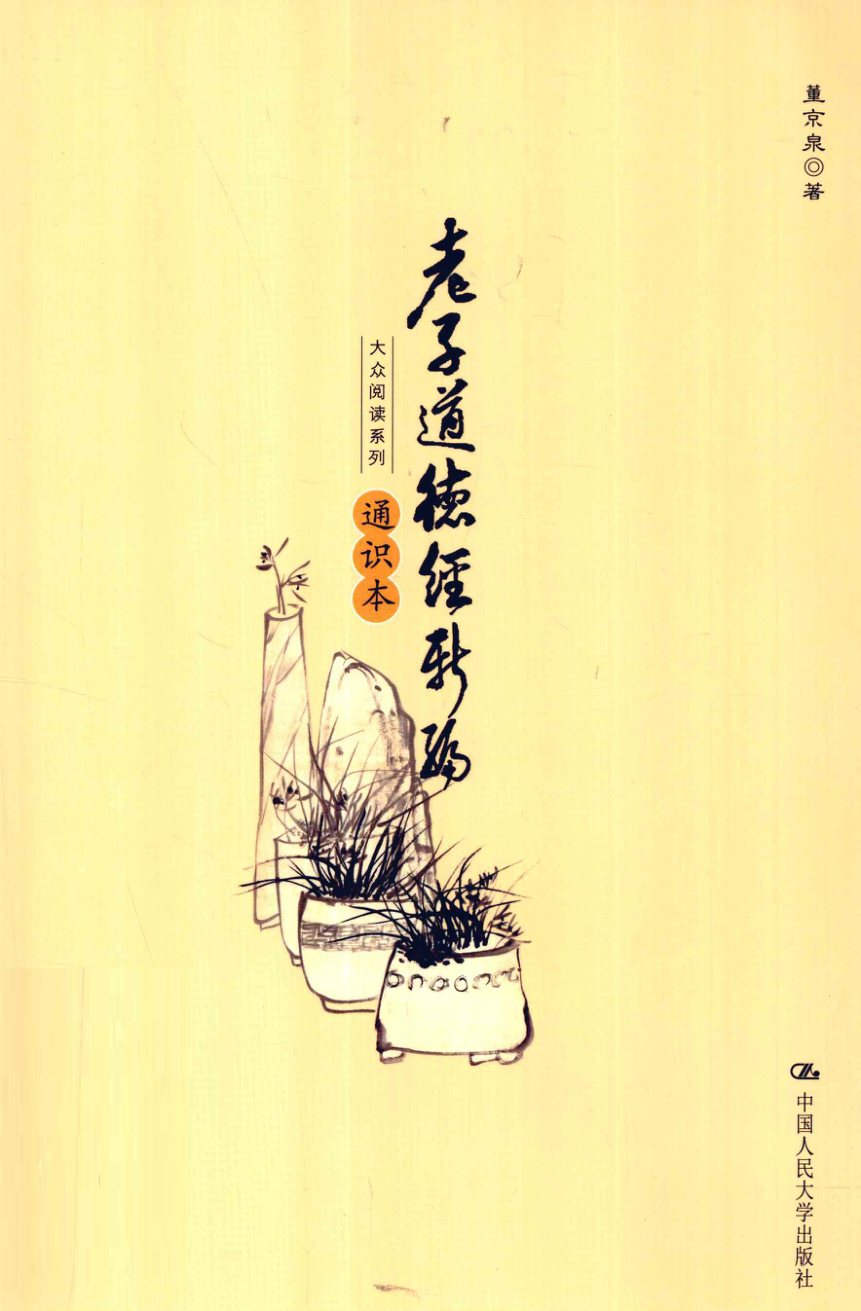 董京泉◎著
老子道德经新编
大众阅读系列
通识本
中国人民大学出版社